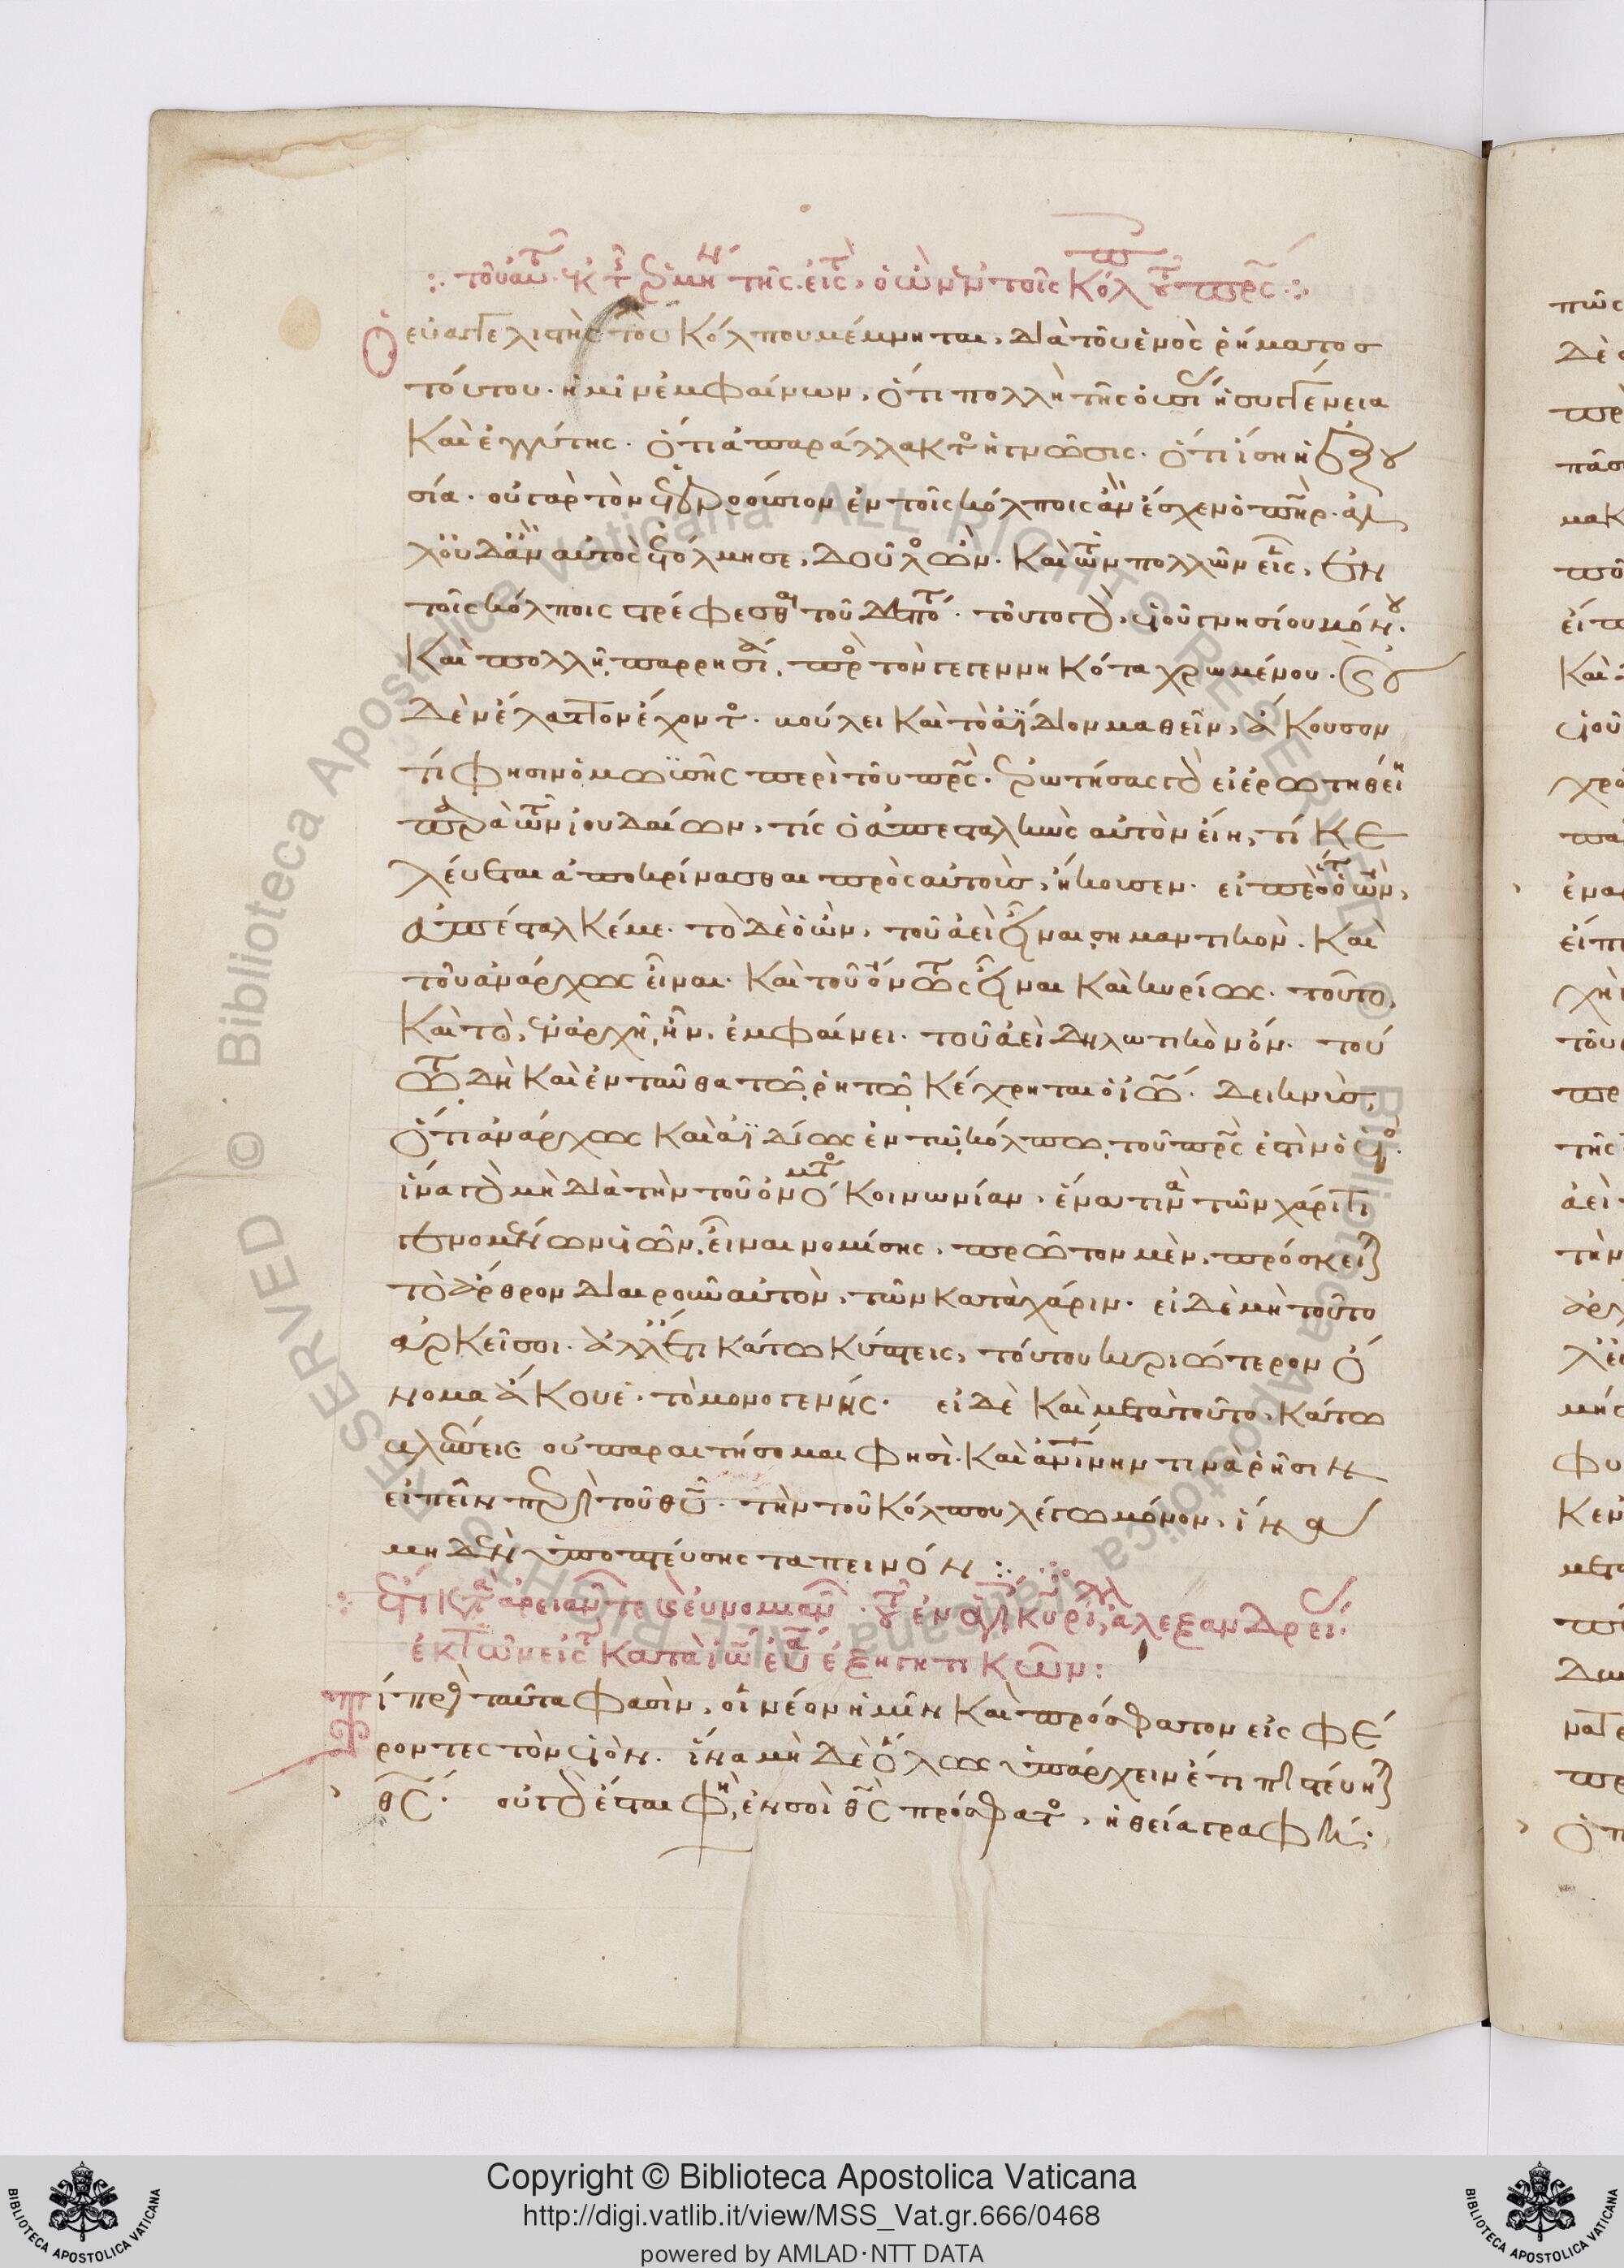 τοῦ αὐτοῦ ἐκ τῆς ἑρμηνείας τῆς εἰς τὸ, ὁ ὢν ἐν τοῖς κόλποις τοῦ πρς:
Ὁ εὐαγγελιστὴς τοῦ κόλπου μέμνηται, διὰ τοῦ ἑνὸς ῥήματος
τούτου. ἡμῖν ἐμφαίνων, ὅτι πολλὴ τῆς οὐσίας ἡ συγγένεια
καὶ ἐγγύτης. ὅτι ἀπαράλλακτος ἡ γνῶσις. ὅτι ἴση ἡ ἐξου
σία. οὐ γὰρ τὸν ἑτεροούσιον ἐν τοῖς κόλποις ἂν ἔσχεν ὁ πηρ. ἀλ
λ' οὐδ' ἂν αὐτὸς ἐτόλμησε, δοῦλος ὢν. καὶ τῶν πολλῶν εἷς, ἐν
τοῖς κόλποις στρέφεσθαι τοῦ δεσπότου. τοῦτο γὰρ, υἱοῦ γνησίου μόνου.
καὶ πολλῇ παρρησίᾳ, πρὸς τὸν γεγεννηκότα χρωμένου.
δὲν ἔλαττον ἔχοντος. βούλει καὶ τὸ ἀΐδιον μαθεῖν, ἄκουσον
τί φησιν ὁ μωϋσῆς περὶ τοῦ πρς. ἐρωτήσας γὰρ εἰ ἐρωτηθείη
παρὰ τῶν ἰουδαίων, τίς ὁ ἀπεσταλκὼς αὐτὸν εἴη, τί κε
λεύεται ἀποκρίνασθαι πρὸς αὐτοὺς, ἤκουσεν. εἰπὲ ὅτι ὁ ὢν,
ἀπέσταλκέ με. τὸ δὲ ὁ ὢν, τοῦ ἀεὶ εἶναι σημαντικὸν. καὶ
τοῦ ἀνάρχως εἶναι. καὶ τοῦ ὄντως εἶναι καὶ κυρίως. τοῦτο,
καὶ τὸ, ἐν ἀρχῇ ἦν, ἐμφαίνει. τοῦ ἀεὶ δηλωτικὸν ὄν. τού
τῳ δὴ καὶ ἐνταῦθα τῷ ῥητῷ κέχρηται ὁ ἰω. δεικνὺς,
ὅτι ἀνάρχως καὶ ἀϊδίως ἐν τῷ κόλπῳ τοῦ πρς ἐστὶν ὁ υἱός.
ἵνα γὰρ μὴ διὰ τὴν τοῦ ὀνόματος κοινωνίαν, ἕνα τινὰ τῶν χάριτι
γενομένων υἱῶν, εἶναι νομίσης, πρῶτον μὲν, πρόσκειται
τὸ ἄρθρον διαιροῦν αὐτὸν, τῶν κατὰ χάριν. εἰ δὲ μὴ τοῦτο
ἀρκεῖ σοι. ἀλλ' ἔτι κάτω κύπτεις, τούτου κυριώτερον ὄ
νομα ἄκουε. τὸ μονογενής. εἰ δὲ καὶ μετὰ τοῦτο, κάτω
βλέπεις οὐ παραιτήσομαι φησὶ. καὶ ἀνθρωπίνην τινὰ ῥῆσιν
εἰπεῖν περὶ τοῦ θυ. τὴν τοῦ κόλπου λέγω μόνον, ἵνα
μηδὲν ὑποπτεύσης ταπεινόν :
ἔτι κατὰ ἀρειανῶν τε καὶ εὐνομιανῶν. τοῦ ἐν ἁγίοις κυρίλλου ἀλεξανδρείας.
ἐκ τῶν εἰς τὸ κατὰ ἰω εὐα ἐξηγητικῶν:
Τί πρὸς ταῦτα φασὶν, οἱ νέον ἡμῖν καὶ πρόσφατον εἰσφέ
ροντες τὸν υἱὸν. ἵνα μὴ δὲ ὅλως ὑπάρχειν ἔτι πιστεύηται
θς. οὐ γὰρ ἔσται φη, ἐν σοὶ θς πρόσφατος, ἡ θεία γραφή.